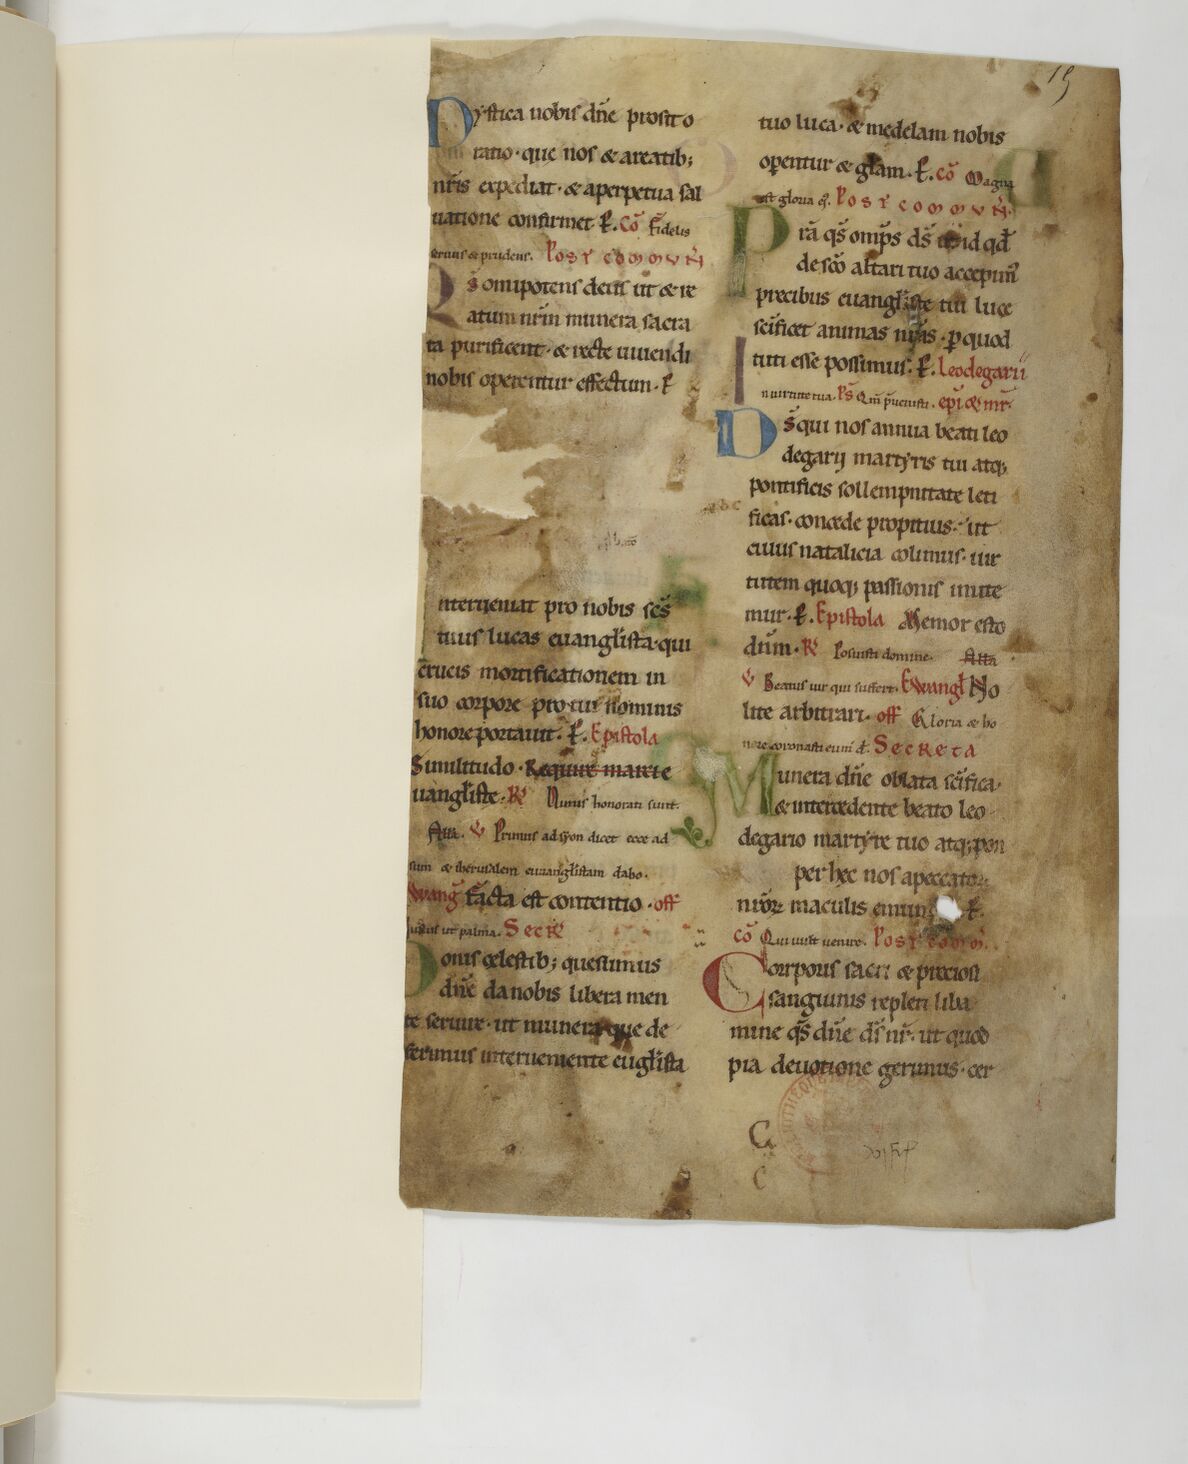 15
Mystica nobis dñe prosit o
ratio · que nos & a reatib;
nr̃is expediat · & a perpetua sal
uatione confirmet · P̲. Cõ Fidelis
seruus & prudens. Post commuñ
Qs̃ omipotens deus ut & re
atum nr̃m munera sacra
ta purificent · & recte uiuendi
nobis operentur effectum · P̲
Interueniat pro nobis sc̃s
tuus lucas euangl̃ista · qui
crucis mortificationem in
suo corpore pro tui nominis
honore portauit · P̲. Epistola
Similitudo · Require marci e
uangl̃iste · R̃ Nimis honorati sunt.
Alla. V Primus ad syon dicet ecce ad
sum & iherusalem euuangl̃istam dabo.
Ewang̃ Facta est contentio · off
Iustus ut palma. Secr̃
Donis celestib; quesumus
dñe da nobis libera men
te seruire · ut munera que de
ferimus interueniente eugl̃ista
tuo luca · & medelam nobis
operentur & gl̃am · P̲. cõ Magna
est gloria e. Post commuñ.
Prã qs̃ omp̃s ds̃ ut id qd̃
de sc̃o altari tuo accepim̃
precibus euangl̃iste tui luce
sc̃ificet animas nr̃as · p̲ quod
tuti esse possimus · P̲. Leodegarii
In uirtute tua. Ps̃ Qm̃ p̃uenisti. epĩ & mr̃.
Ds̃ qui nos annua beati leo
degarij martyris tui atq;
pontificis sollempnitate leti
ficas · concede propitius · ut
cuius natalicia colimus · uir
tutem quoq; passionis imite
mur · P̲. Epistola Memor esto
dñm · R̃ Posuisti domine. Alla
V Beatus uir qui suffert. Ewangl̃ No
lite arbitrari · off Gloria & ho
nore coronasti eum d̃. Secreta
Munera dñe oblata sc̃ifica ·
& intercedente beato leo
degario martyre tuo atq; pon
per hec nos a peccator
nr̃or maculis emun P̲.
cõ Qui uult uenire. Post com̃.
Corporis sacri & preciosi
sanguinis repleti liba
mine qs̃ dñe ds̃ nr̃ · ut quod
pia deuotione gerimus · cer
C
C